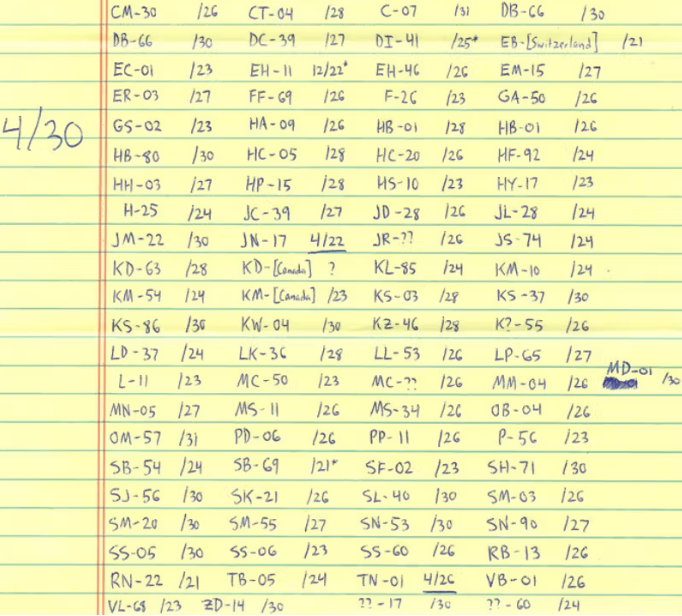 CM-30 /26 CT-04 /28 C-07 /31 DB-66 /30
DB-66 /30 DC-39 /27 DI-41 /25* EB-[Switzerland] /21
EC-01 /23 EH-11 12/22* EH-46 /26 EM-15 /27
ER-03 /27 FF-69 /26 F-26 /23 GA-50 /26
4/30 GS-02 /23 HA-09 /26 HB-01 /28 HB-01 /26
HB-80 /30 HC-05 /28 HC-20 /26 HF-92 /24
HH-03 /27 HP-15 /28 HS-10 /23 HY-17 /23
H-25 /24 JC-39 /27 JD-28 /26 JL-28 /24
JM-22 /30 JN-17 4/22 JR-?? /26 JS-74 /24
KD-63 /28 KD-[Canada] ? KL-85 /24 KM-10 /24
KM-54 /24 KM-[Canada] /23 KS-03 /28 KS-37 /30
KS-86 /30 KW-04 /30 KZ-46 /28 K?-55 /26
LD-37 /24 LK-36 /28 LL-53 /26 LP-65 /27
L-11 /23 MC-50 /23 MC-?? /26 MM-04 /26 MD-01 /30
MN-05 /27 MS-11 /26 MS-34 /26 OB-04 /26
OM-57 /31 PD-06 /26 PP-11 /26 P-56 /23
SB-54 /24 SB-69 /21* SF-02 /23 SH-71 /30
SJ-56 /30 SK-21 /26 SL-40 /30 SM-03 /26
SM-20 /30 SM-55 /27 SN-53 /30 SN-90 /27
SS-05 /30 SS-06 /23 SS-60 /26 RB-13 /26
RN-22 /21 TB-05 /24 TN-01 4/26 VB-01 /26
VL-68 /23 ZD-14 /30 ??-17 /30 ??-60 /24